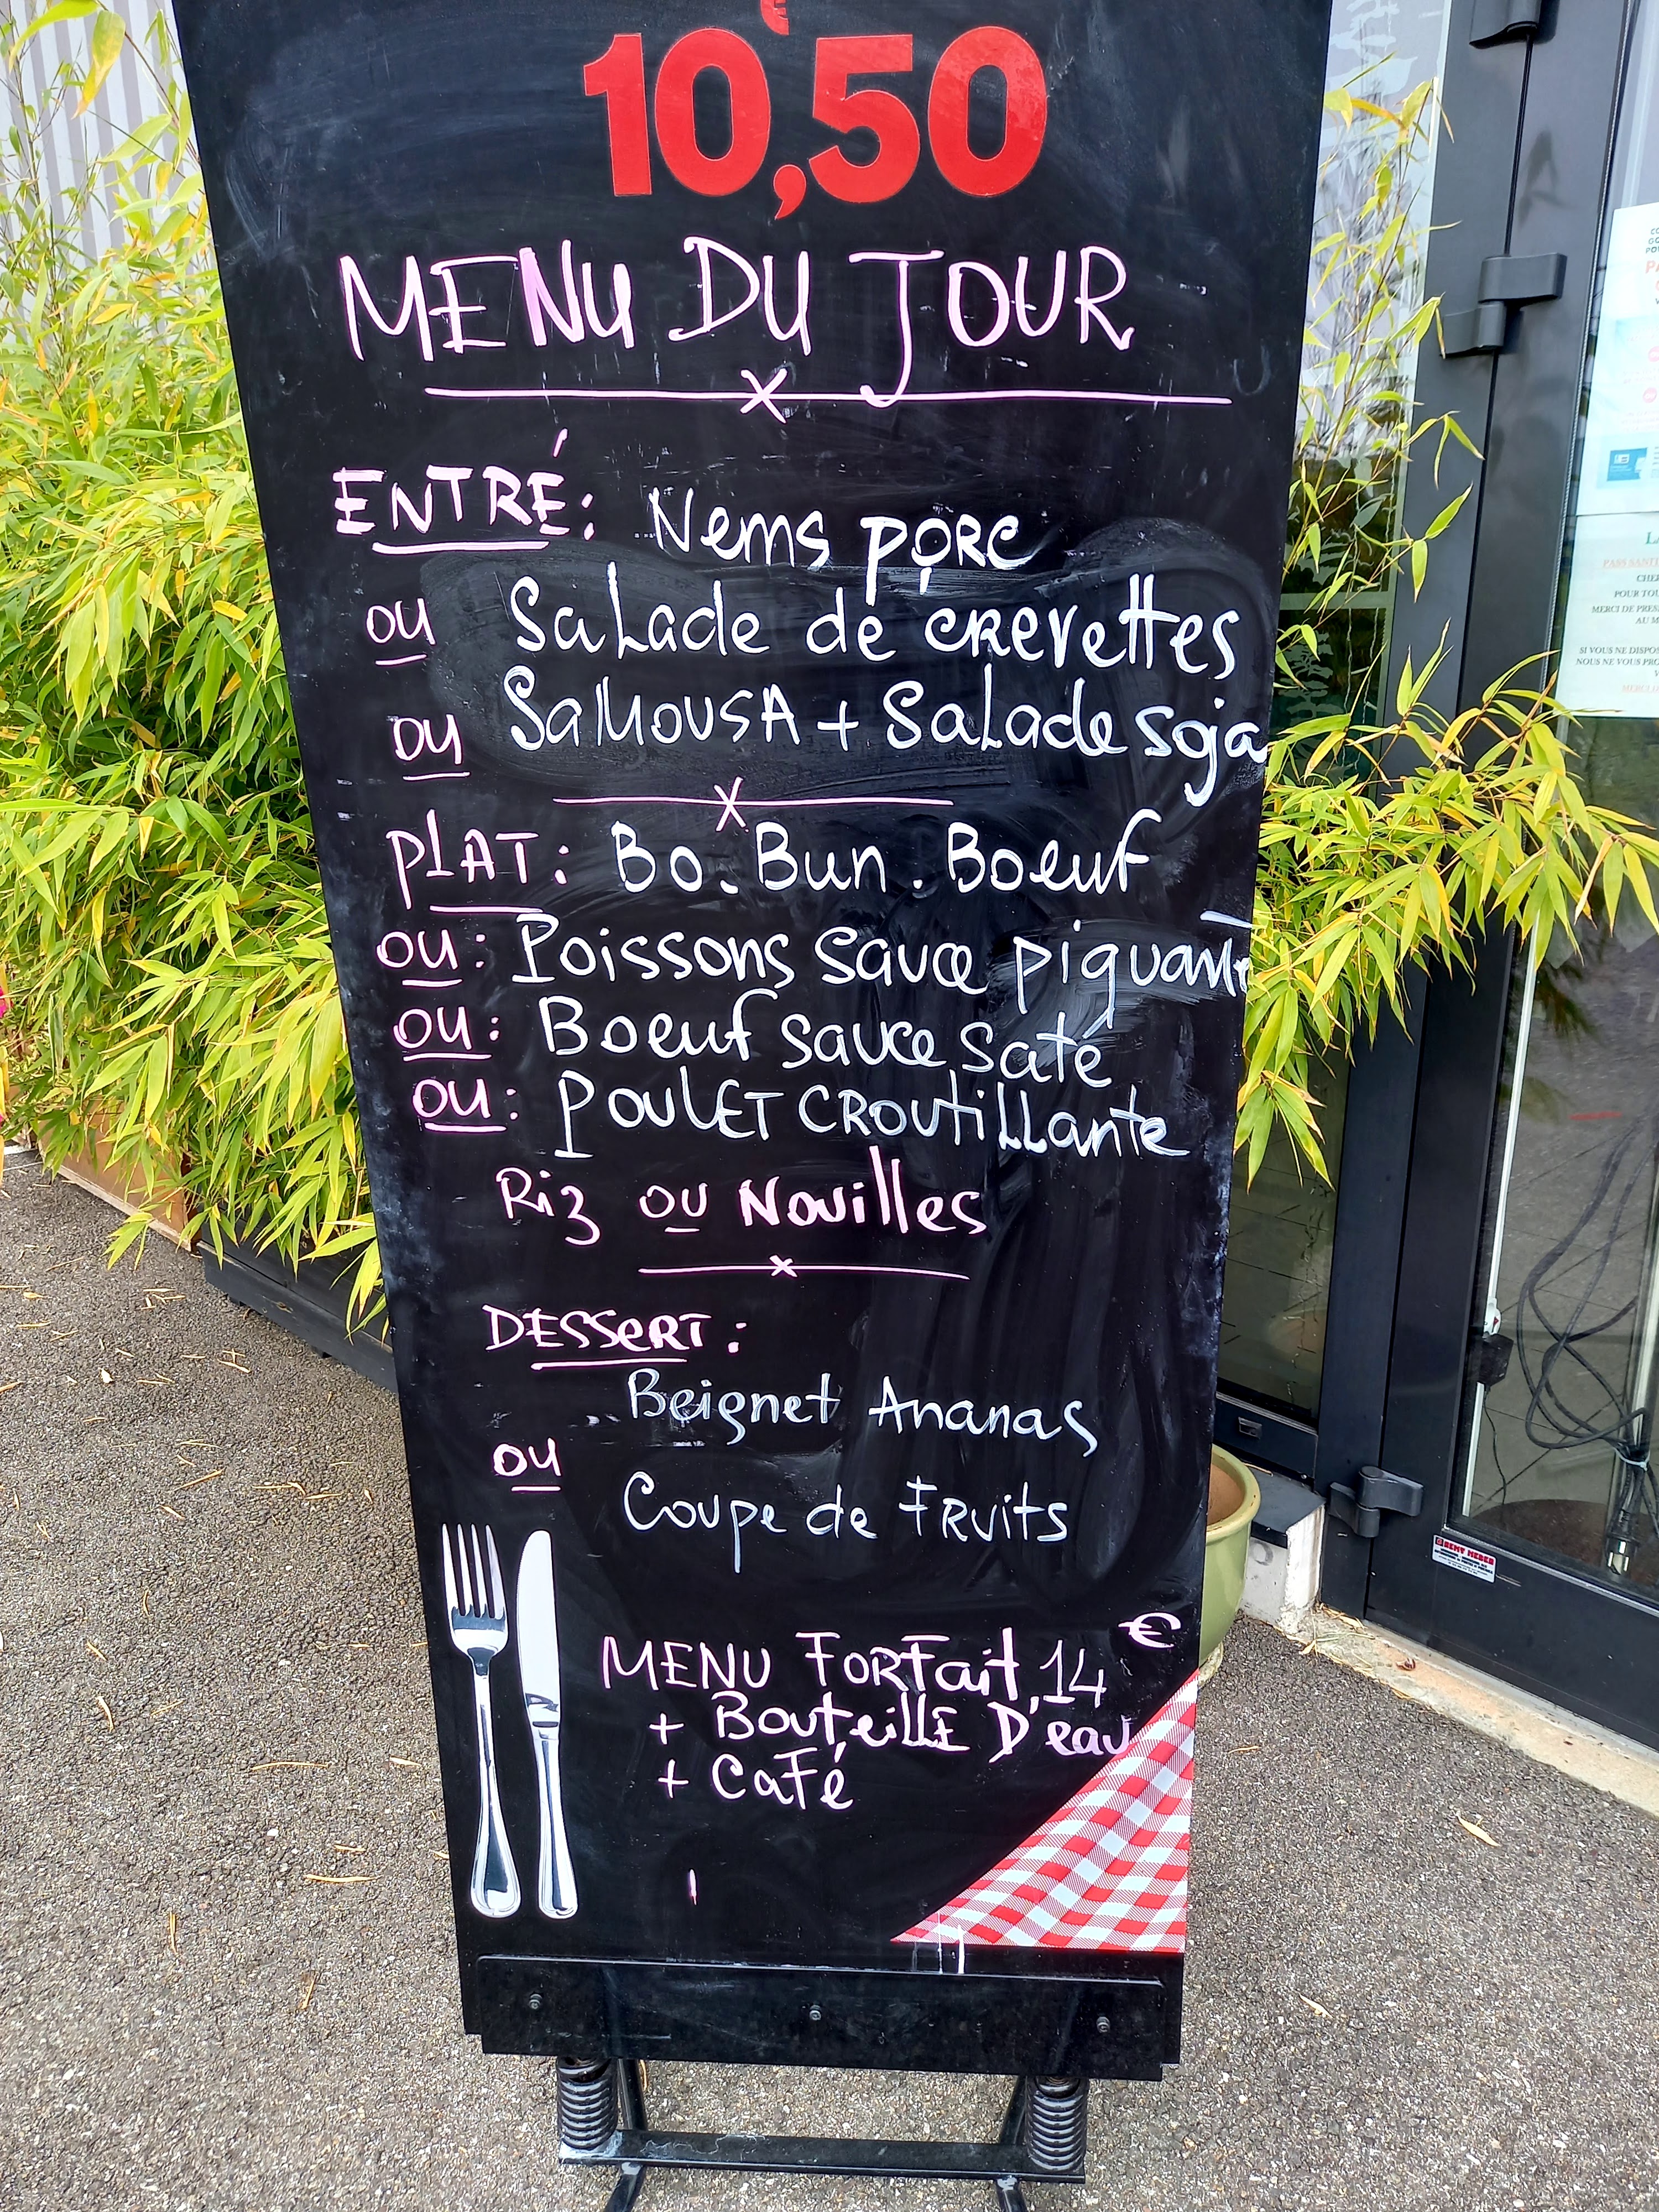 €
10,50
MENU DU JOUR
ENTRÉ: Nems PORC
ou Salade de crevettes
ou SAMOUSA + Salade soja
PLAT: Bo. Bun. Boeuf
ou: Poissons sauce piquante
ou: Boeuf sauce saté
ou: POULET CROUTILLante
Riz ou Nouilles
DESSERT:
Beignet Ananas
ou
Coupe de FRuits
MENU FORFait 14 €
+ BouteiLLE D'eau
+ CaFé
PASS SANIT
POUR TOU
MERCI DE PRES
AU M
SI VOUS NE DISPOS
NOUS NE VOUS PRO